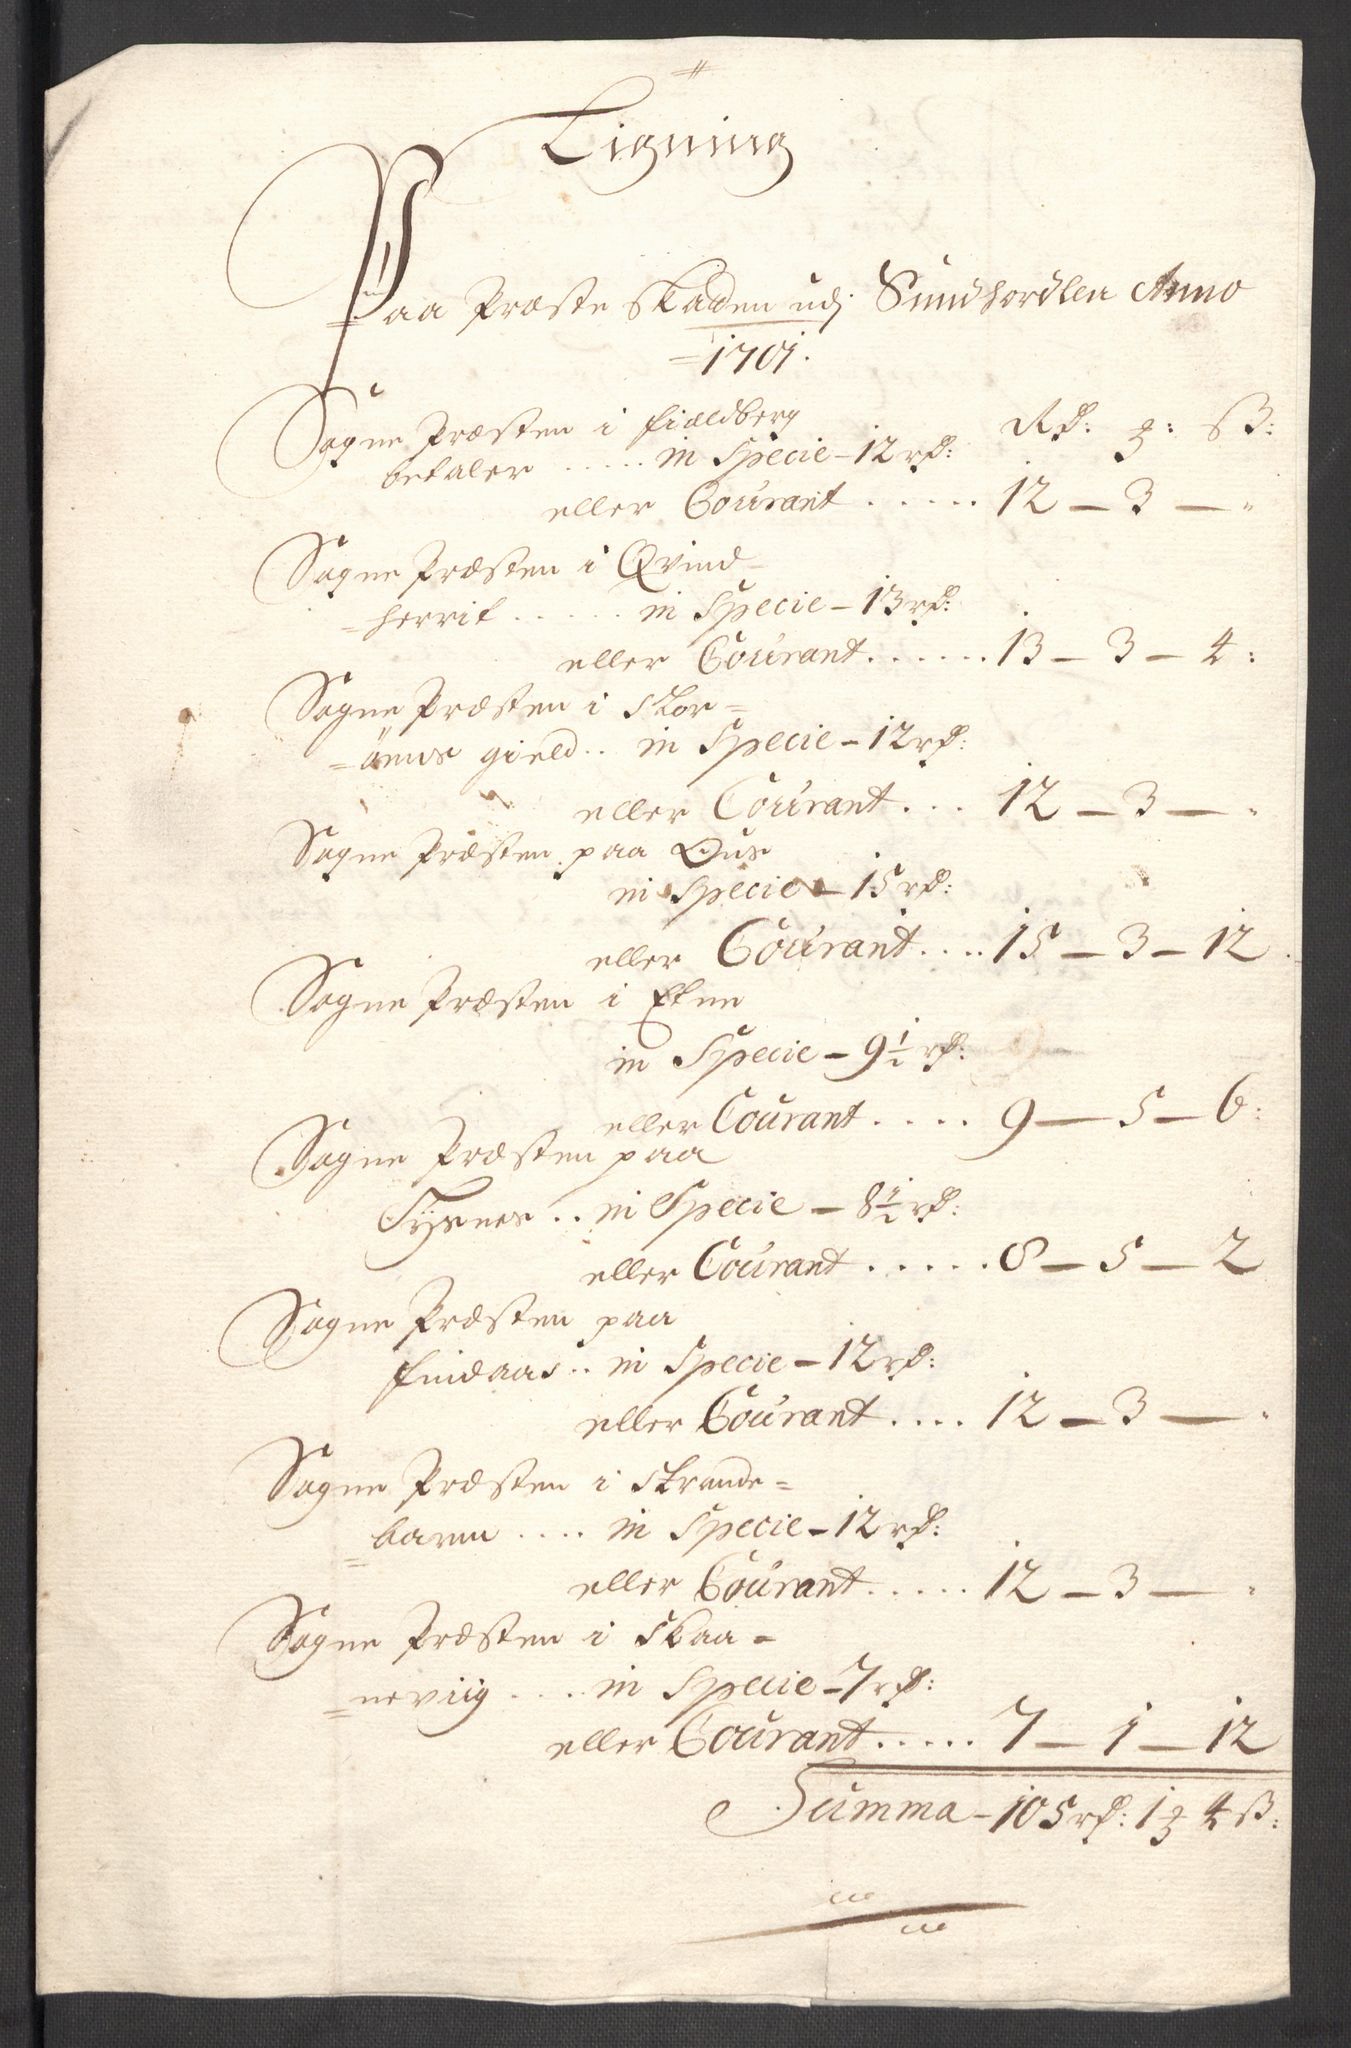 Ligning
Paa Præste Skaden udj Sundhordlen Anno
1701.
Sogne Præsten i Fieldberg Rd: ℥: ß:
betaler ..... in Specie – 12 rd:
eller Courant ..... 12 – 3 – "
Sogne Præsten i Qvind-
=herrit ..... in Specie – 13 rd:
eller Courant ...... 13 – 3 – 4:
Sogne Præsten i Stor=
=öens gield.. in Specie – 12 rd:
eller Courant... 12 – 3 – "
Sogne Præsten paa Ous
in Specie – 15 rd:
eller Courant.... 15 – 3 – 12
Sogne Præsten i Etne
in Specie – 9½ rd:
eller Courant .... 9 – 5 – 6:
Sogne Præsten paa
Tysnes .. in Specie – 8½ rd:
eller Courant ..... 8 – 5 – 2
Sogne Præsten paa
Findaas .. in Specie – 12 rd:
eller Courant .... 12 – 3 – "
Sogne Præsten i Strande=
=barm .... in Specie – 12 rd:
eller Courant ..... 12 – 3 – "
Sogne Præsten i Skaa=
=neviig .... in Specie – 7 rd:
eller Courant ..... 7 – 1 – 12
Summa – 105 rd: 1 ℥ 4 ß: